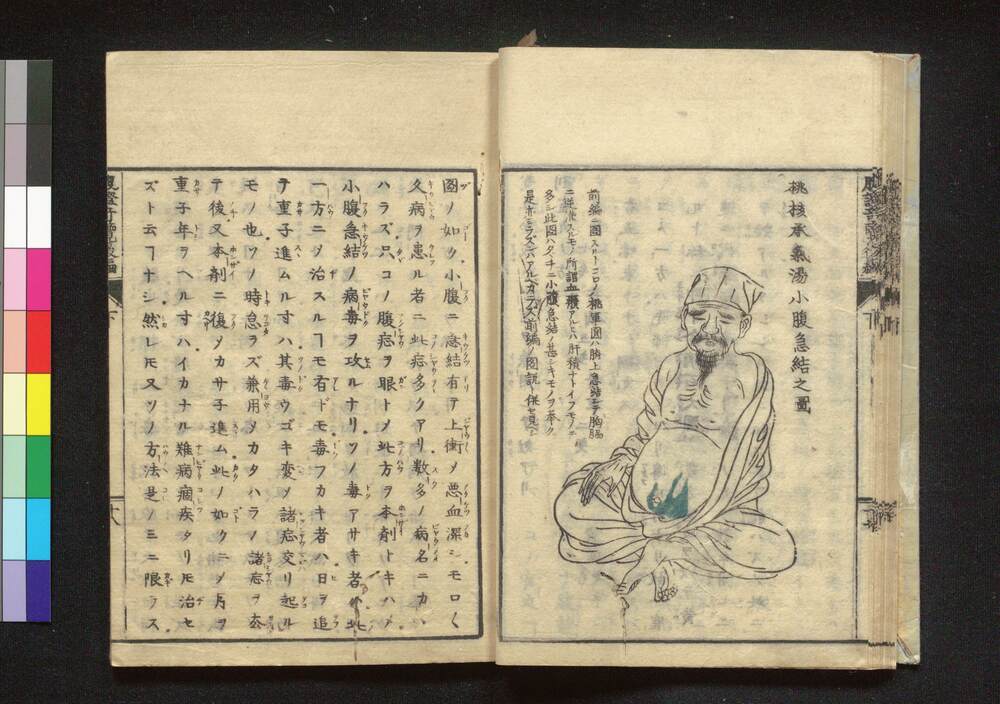 桃核承氣湯小腹急結之圖
前編ニ圖スルトコロノ桃軍圓ハ胸上急結シテ胸膈
ニ逆衝スルモノ所謂血積アルハ肝積ナトイフモノニ
多シ此圖ハタヾチニ小腹急結ノ甚シキモノヲ擧ク
是亦シラズンバアルベカラズ前編ノ圖説ト併セ見ルベシ
圖ノ如ク小腹ニ急結有テ上衝メ悪血深シモロ〱
久病ヲ患ル者ニ此症多クアリ数多ノ病名ニカヽ
ハラズ只コノ腹症ヲ眼トメ此方ヲ本劑トキハメ
小腹急結ノ病毒ヲ攻ルナリソノ毒アサキ者ハ此
一方ニヲ治スルヿモ有ドモ毒フカキ者ハ日ヲ追
テ重子進ムル寸ハ其毒ウゴキ変ソ諸症交リ起ル
モノ也ソノ時怠ラズ兼用メカタハラノ諸症ヲ去
テ後又本劑ニ復メカサ子進ム此ノ如クニメ月ヲ
重子年ヲヘル寸ハイカナル難病痼疾タリ𪜈治セ
ズト云ヿナシ然レ𪜈又ソノ方法是ノミニ限ラス
下
十八